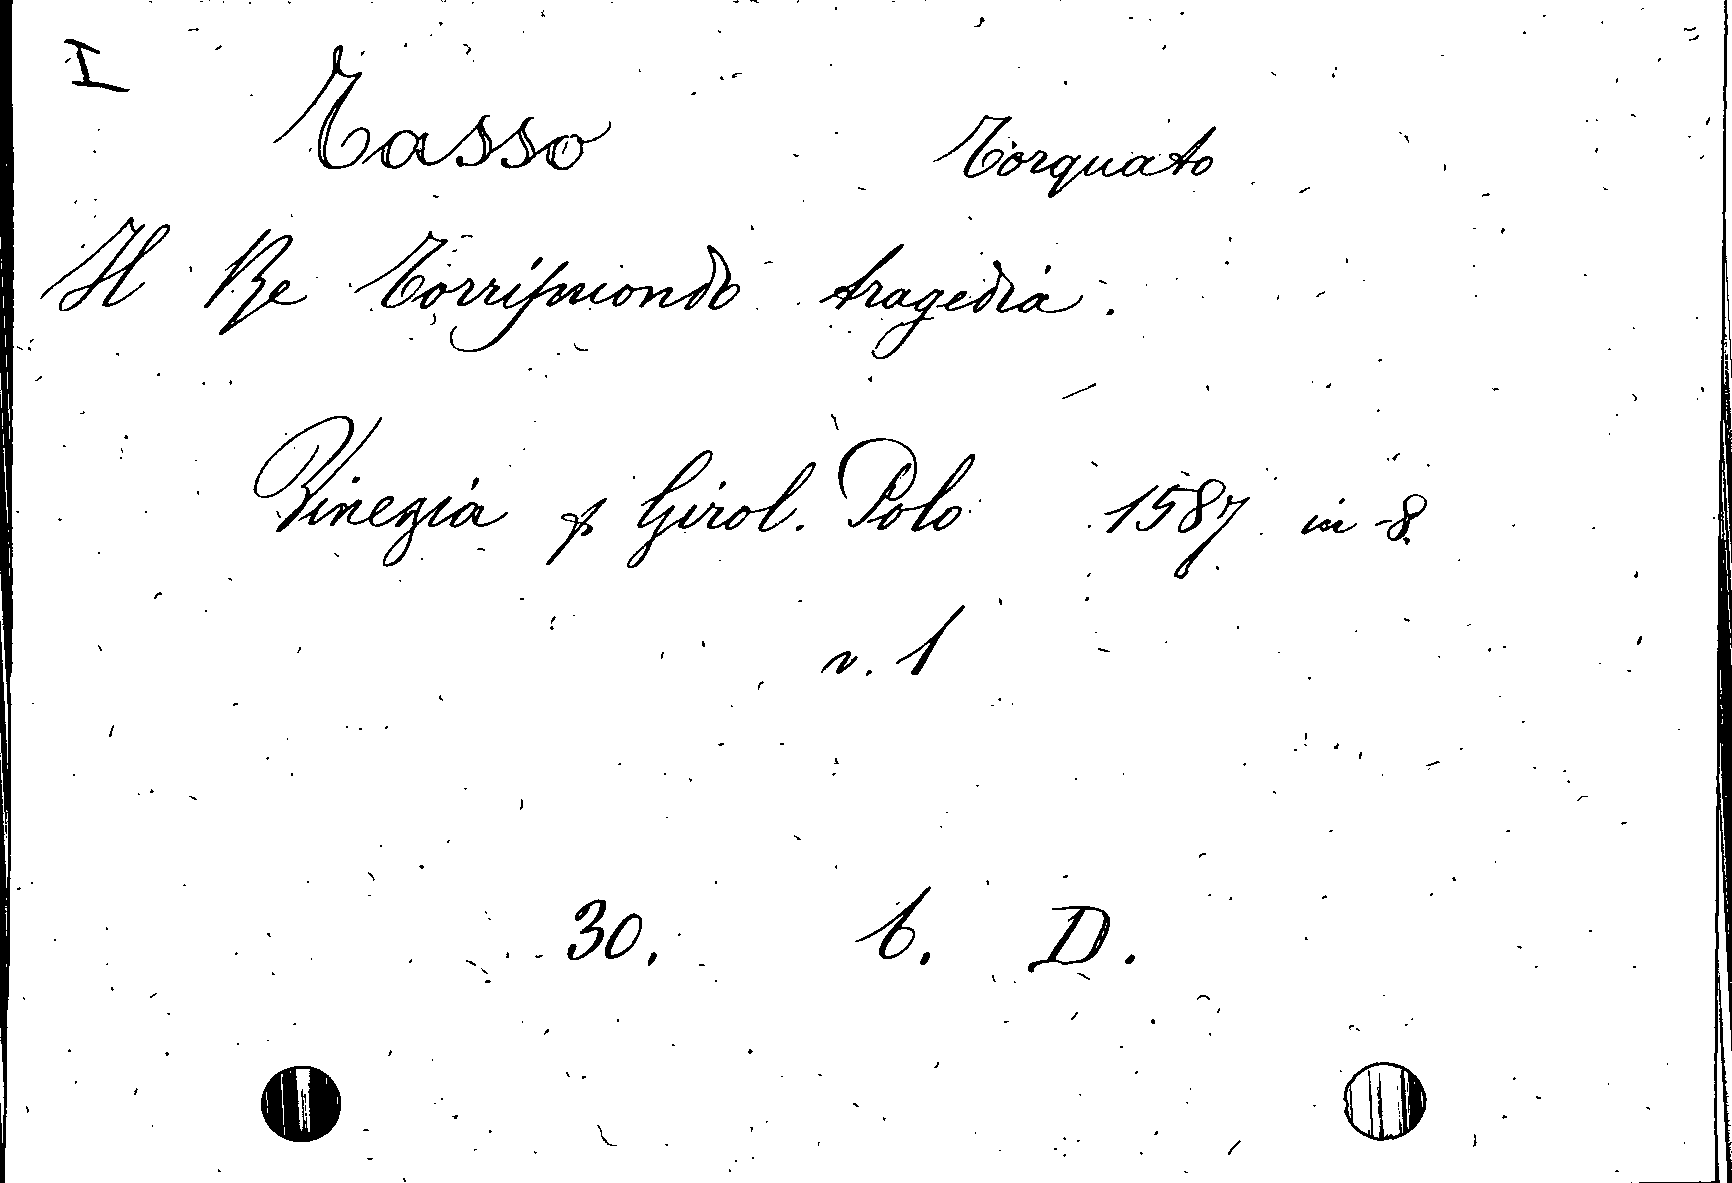 I
Tasso Torquato
Il Re Torrismondo tragedia.
Vinegia p Girol. Polo 1587 in -8.
v. 1
30. 6. D.